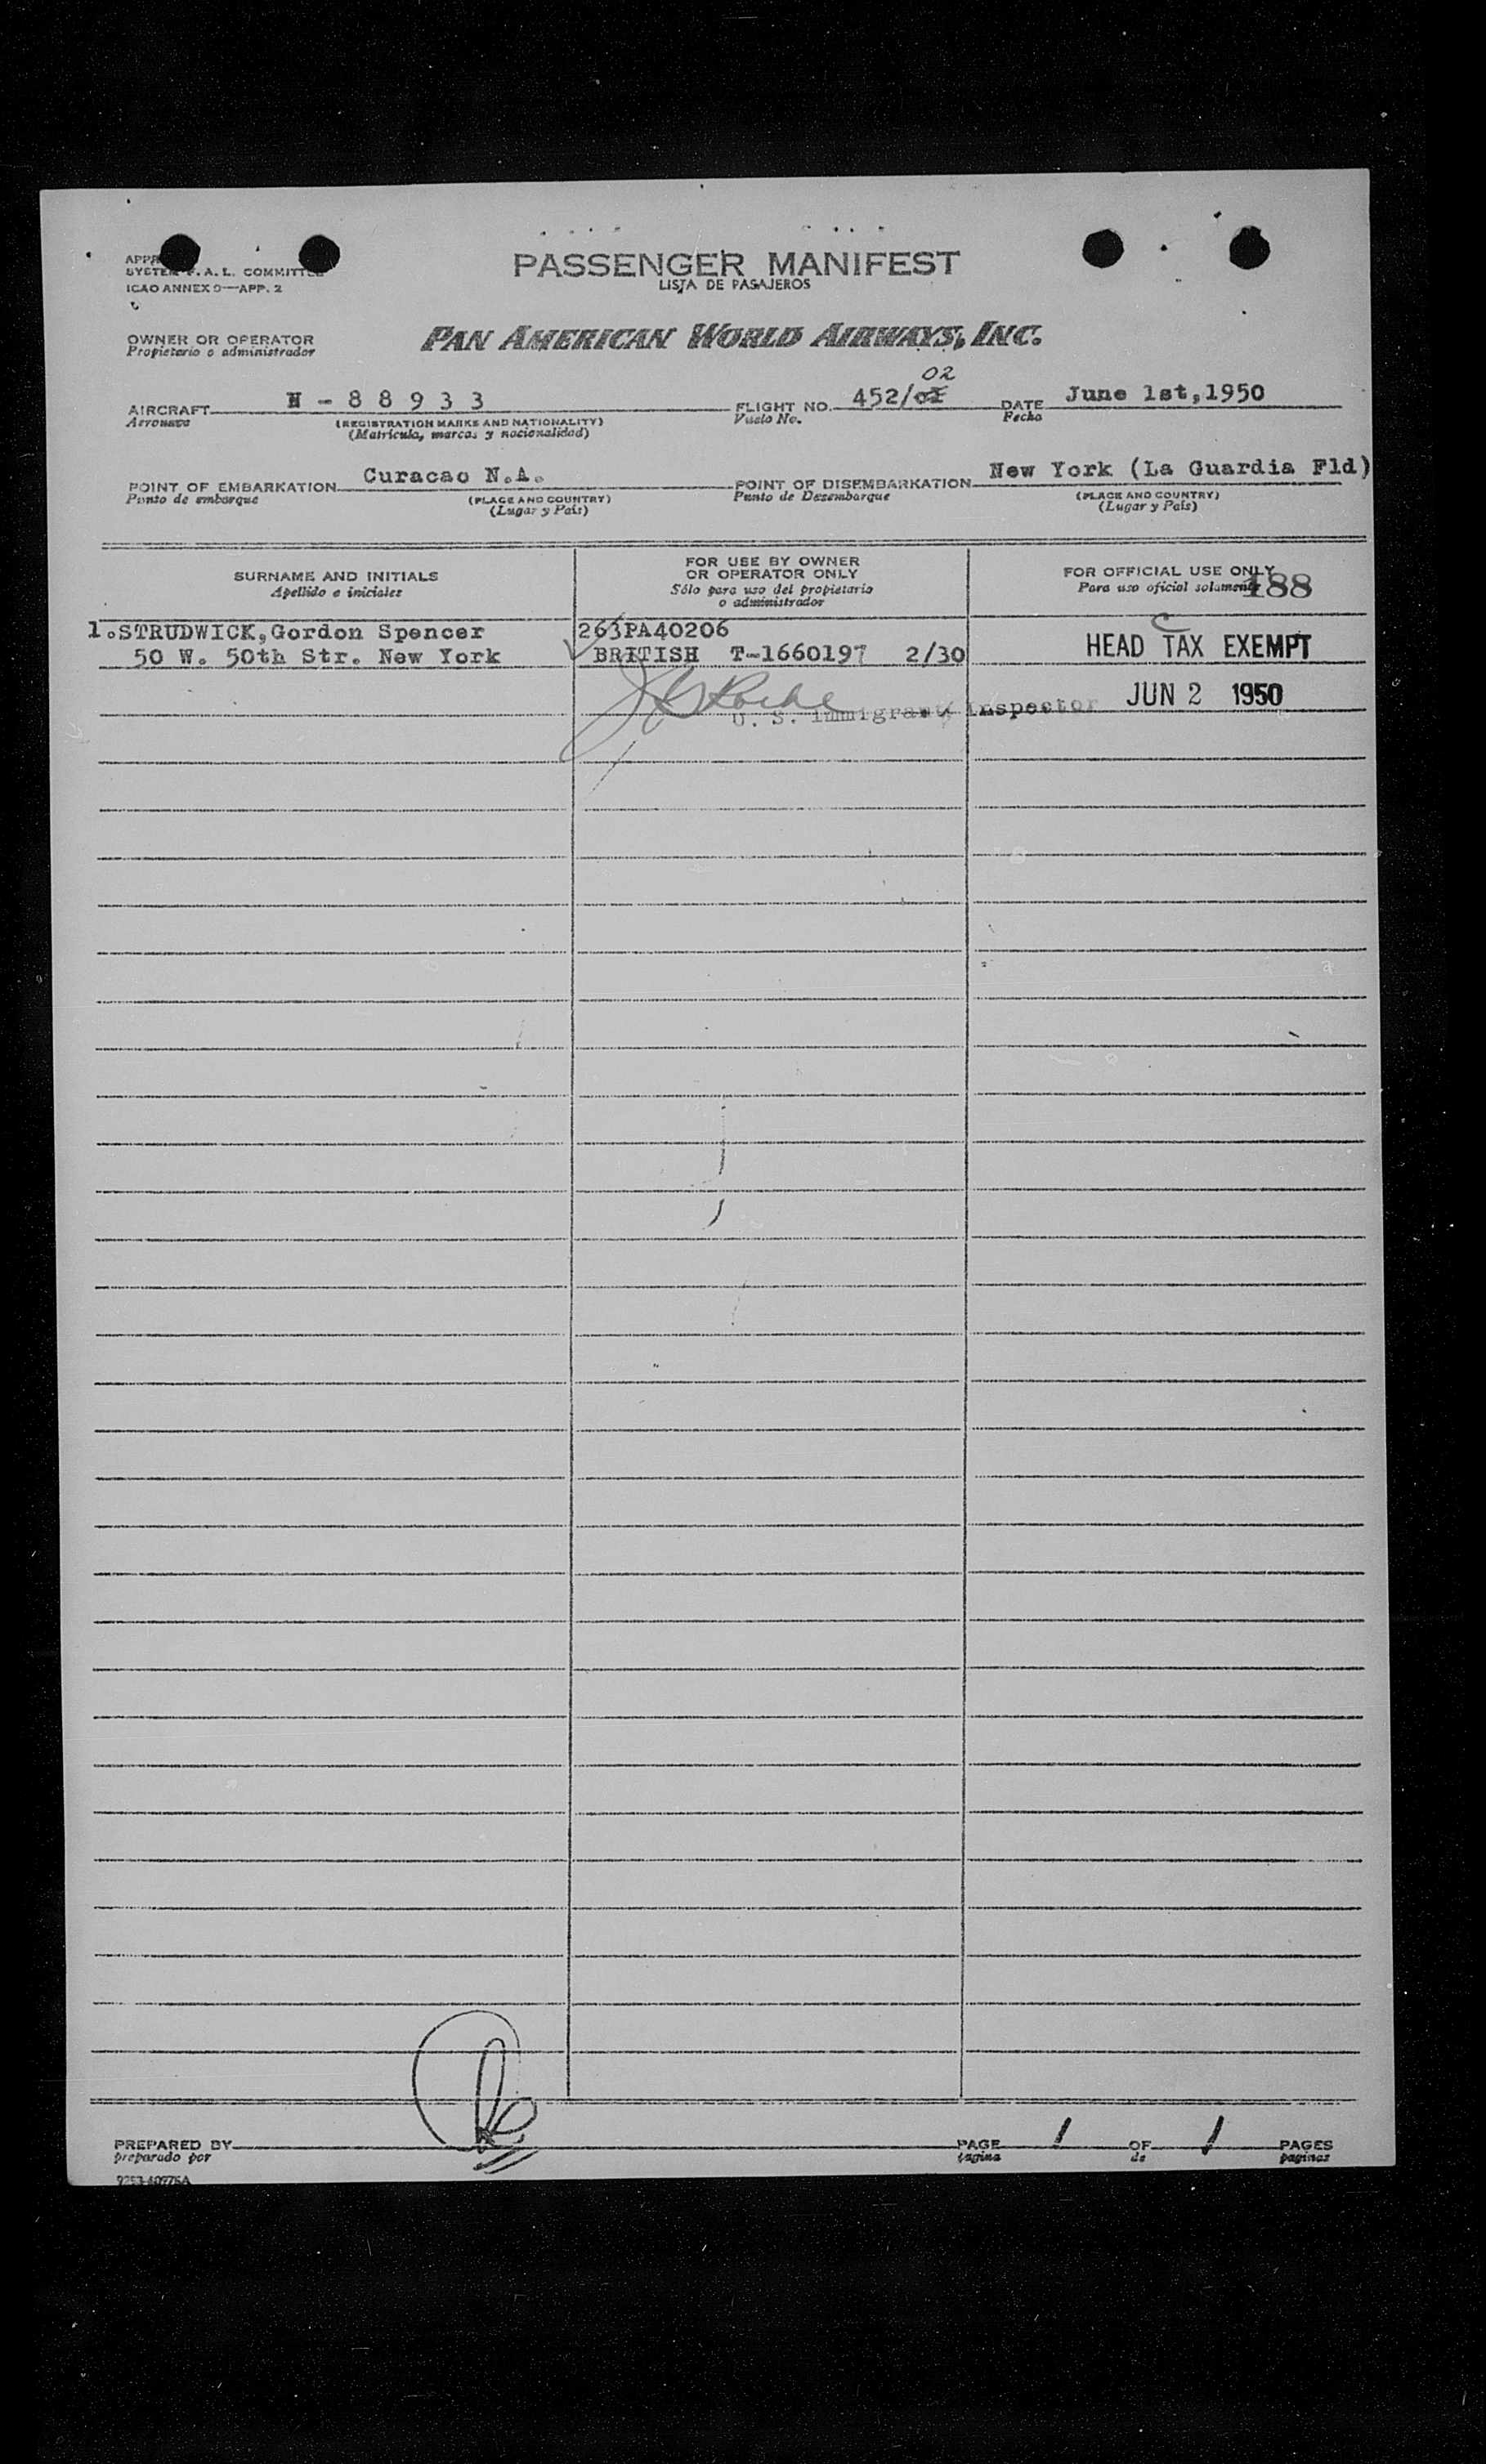 SYSTEM F. A. L. COMMITTEE
ICAO ANNEX 9—APP. 2
PASSENGER MANIFEST
LISTA DE PASAJEROS
OWNER OR OPERATOR
Propietario o administrador
PAN AMERICAN WORLD AIRWAYS, INC.
AIRCRAFT N - 8 8 9 3 3 FLIGHT NO. 452/ 02 DATE June 1st,1950
Aeronave (REGISTRATION MARKS AND NATIONALITY) Vuelo No. Fecha
(Matrícula, marcas y nacionalidad)
POINT OF EMBARKATION Curacao N.A. POINT OF DISEMBARKATION New York (La Guardia Fld)
Punto de embarque (PLACE AND COUNTRY) Punto de Desembarque (PLACE AND COUNTRY)
(Lugar y País) (Lugar y País)
SURNAME AND INITIALS
Apellido e iniciales
FOR USE BY OWNER
OR OPERATOR ONLY
Sólo para uso del propietario
o administrador
FOR OFFICIAL USE ONLY
Para uso oficial solamente 188
1.STRUDWICK,Gordon Spencer 263PA40206 C
50 W. 50th Str. New York BRITISH T-1660197 2/30 HEAD TAX EXEMPT
U. S. Immigrant Inspector JUN 2 1950
PREPARED BY PAGE 1 OF 1 PAGES
preparado por pagina de paginas